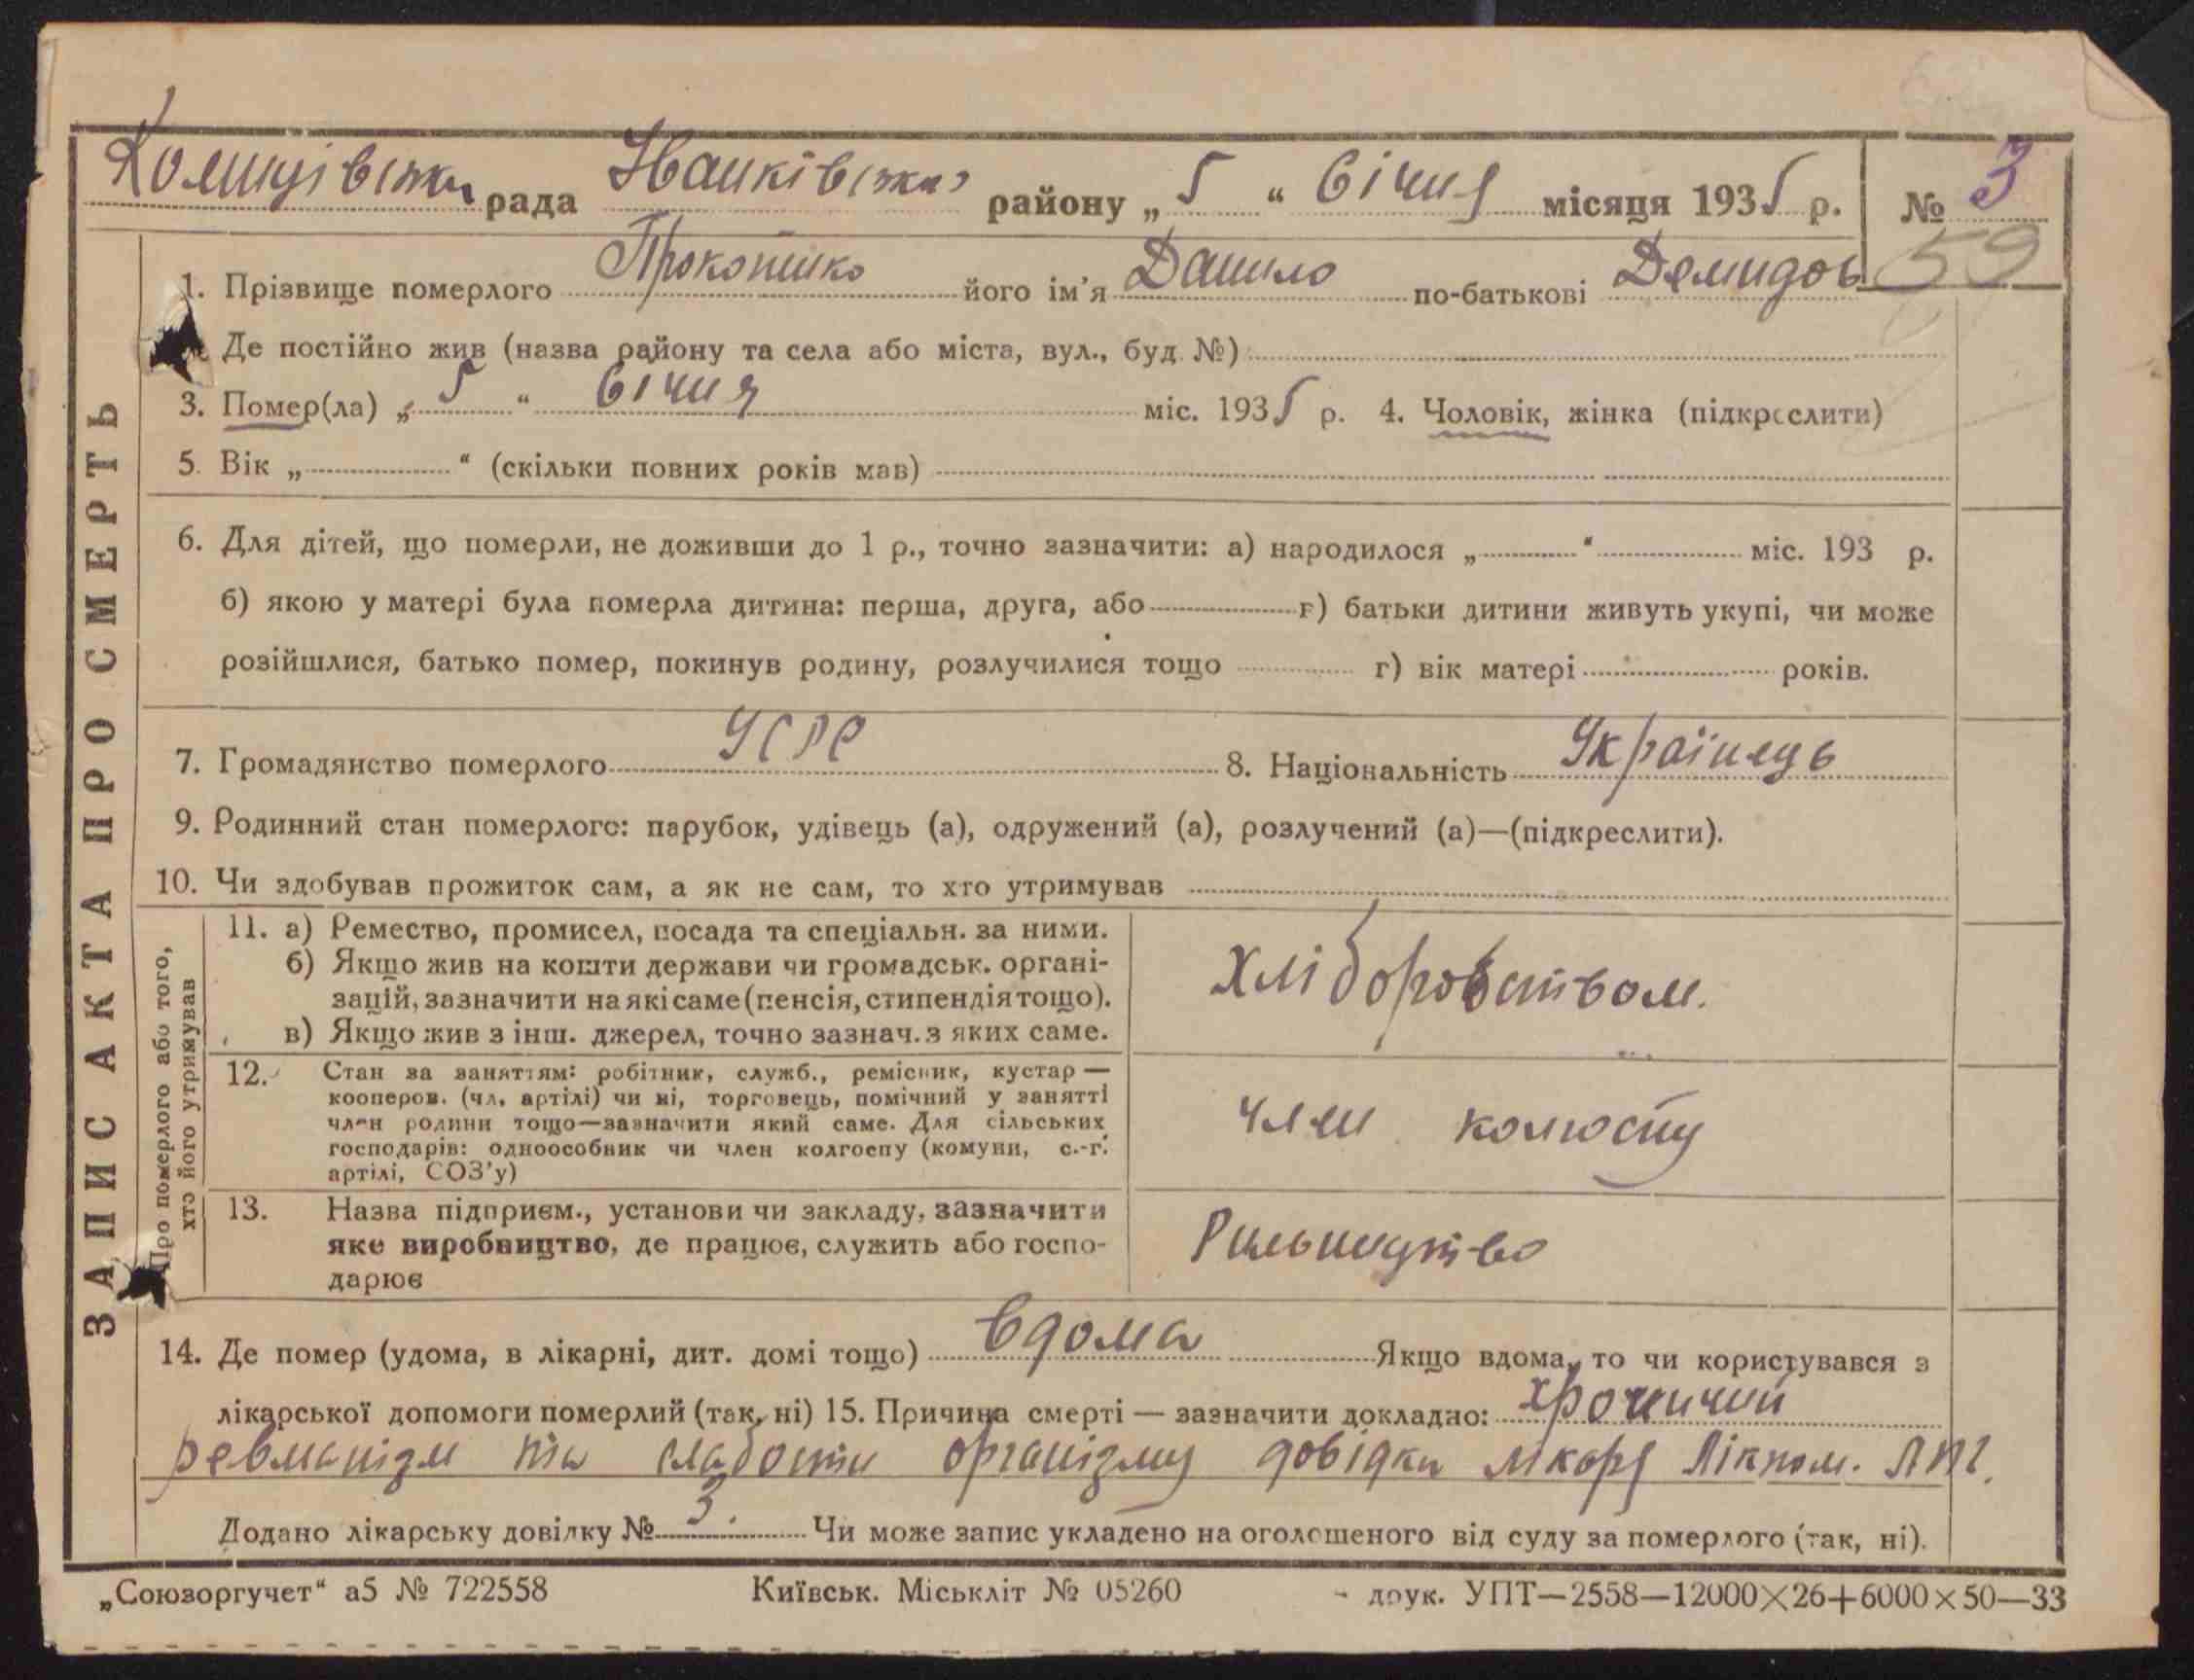 рада району „ 5 “ Січня місяця 1935 р. № 3
59
1. Прізвище померлого його ім'я Данило по-батькові Демидов
Де постійно жив (назва району та села або міста, вул., буд. №)
3. Помер(ла) „ 5 “ Січня міс. 1935 р. 4. Чоловік, жінка (підкреслити)
5. Вік „ “ (скільки повних років мав)
6. Для дітей, що померли, не доживши до 1 р., точно зазначити: а) народилося „ “ міс. 193 р.
б) якою у матері була померла дитина: перша, друга, або г) батьки дитини живуть укупі, чи може
розійшлися, батько помер, покинув родину, розлучилися тощо г) вік матері років.
7. Громадянство померлого УСРР 8. Національність Українець
9. Родинний стан померлого: парубок, удівець (а), одружений (а), розлучений (а)—(підкреслити).
10. Чи здобував прожиток сам, а як не сам, то хто утримував
ЗАПИС АКТА ПРО СМЕРТЬ
Про померлого або того,
хто його утримував
11. а) Ремество, промисел, посада та спеціальн. за ними.
б) Якщо жив на кошти держави чи громадськ. органі-
зацій, зазначити на які саме (пенсія, стипендія тощо).
в) Якщо жив з інш. джерел, точно зазнач. з яких саме.
Хліборобством.
12. Стан за заняттям: робітник, служб., ремісник, кустар —
кооперов. (чл. артілі) чи ні, торговець, помічний у занятті
член родини тощо—зазначити який саме. Для сільських
господарів: одноособник чи член колгоспу (комуни, с.-г.
артілі, СОЗ'у)
член колгоспу
13. Назва підприєм., установи чи закладу, зазначити
яке виробництво, де працює, служить або госпо-
дарює
Рільництво
14. Де помер (удома, в лікарні, дит. домі тощо) вдома Якщо вдома, то чи користувався з
лікарської допомоги померлий (так, ні) 15. Причина смерті — зазначити докладно: хронічний
ревматізм та слабости організму довідка лікаря Лікпом.
Додано лікарську довідку № 3. Чи може запис укладено на оголошеного від суду за померлого (так, ні).
„Союзоргучет“ а5 № 722558 Київськ. Міськліт № 05260 друк. УПТ—2558—12000×26+6000×50—33